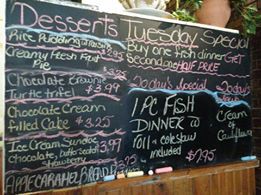 Desserts
Rice Pudding w/raisin $2.95
Creamy Fresh Fruit
Pie $3.95
Chocolate Brownie
Turtle trifel $3.99
Chocolate Cream
Filled Cake $3.25
Ice Cream Sundae $3.97
chocolate, butterscotch
strawberry
APPLE CARAMEL BREAD
Tuesday Special
Buy one fish dinner Get
Second one HALF PRICE
Today's Special
1 PC FISH
DINNER w
roll + coleslaw
included
$7.95
Today's
Cream
of
Cauliflower